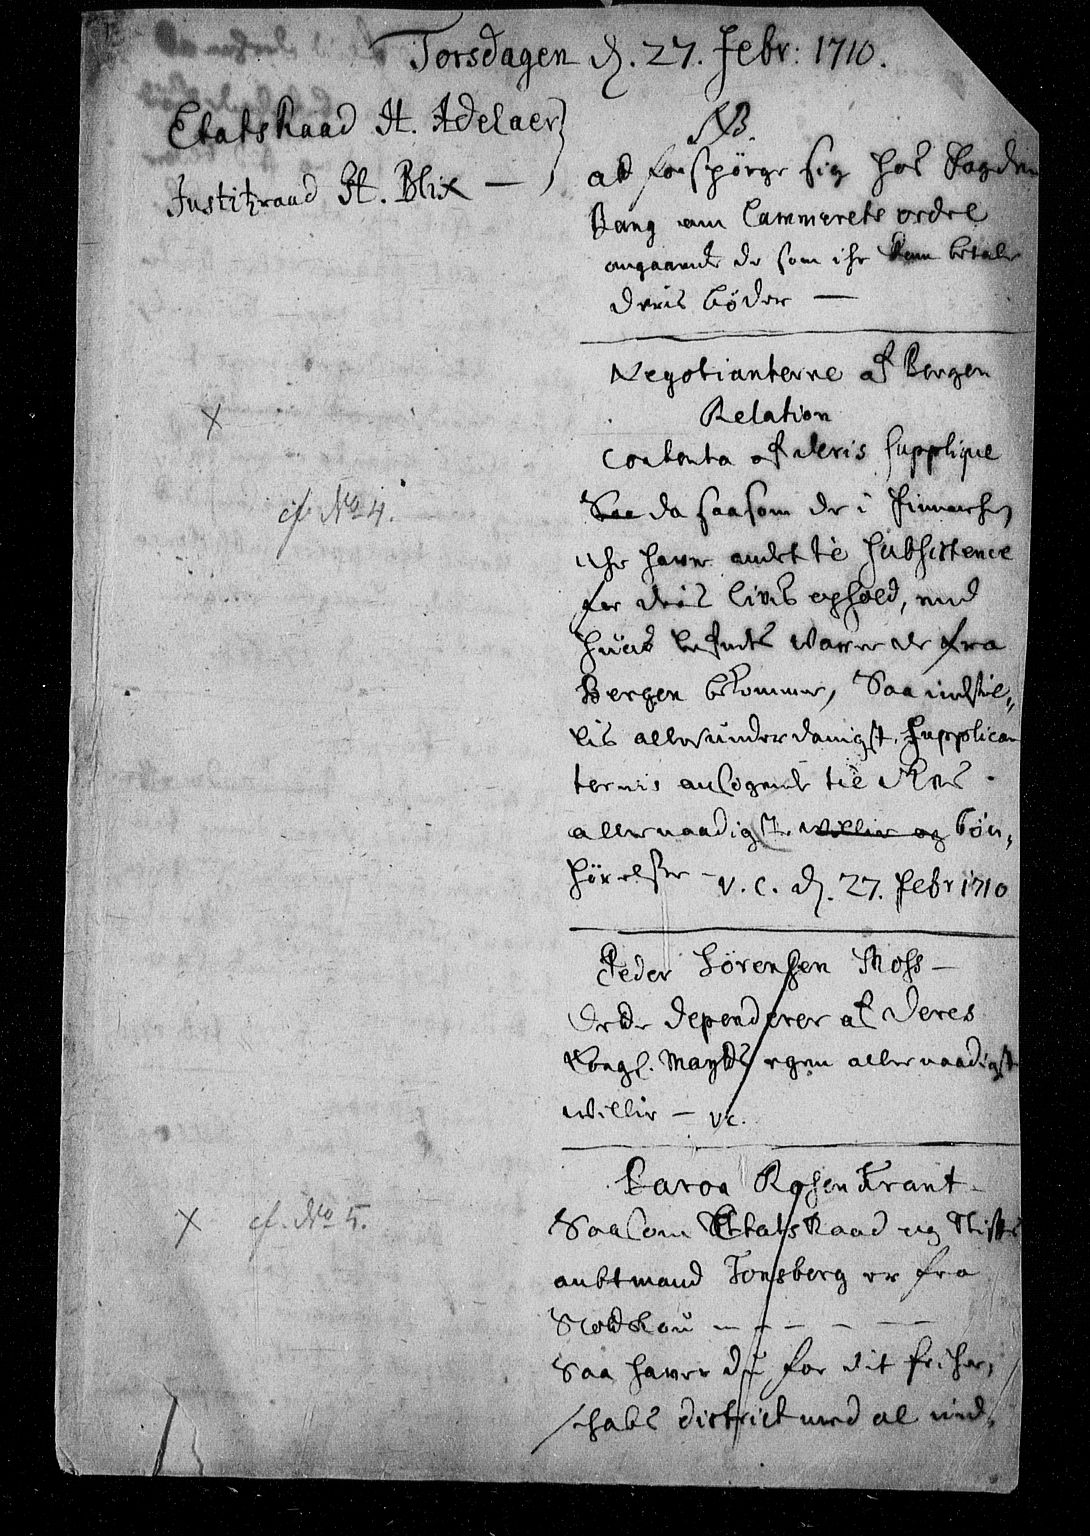 Torsdagen d. 27. Febr: 1710.
Etats Raad H. Adelaer
Justitzraad H. Blix —
NB.
at forspørge sig hos
Bang om Cammerets ordre
angaaende de som ike kan betale
deris bøder —
Negotianterne af Bergen
Relation
Contenta af deris Supplique
Saa da saasom de i Finmarken
ike haver andet til Subsistence
for deris livs ophold, end
hues
Bergen bekommer, Saa indstil-
lis allerunderdanigst Supplican
ternis ansøgende til
allernaadigste willie og bøn,
hørelsse — V. C. d. 27. Febr 1710
Peder Sørensen Moss —
dette dependerer af Deres
Kongl. Mayts egen allernaadigst
willie — vc.
Baron Rosen Krant
Saasom Etats Raad og Stifts
ambtmand Tonsberg er fra
— — — — —
Saa haver du for dit friher,
skabs district med al
cf. No 4.
cf. No 5.